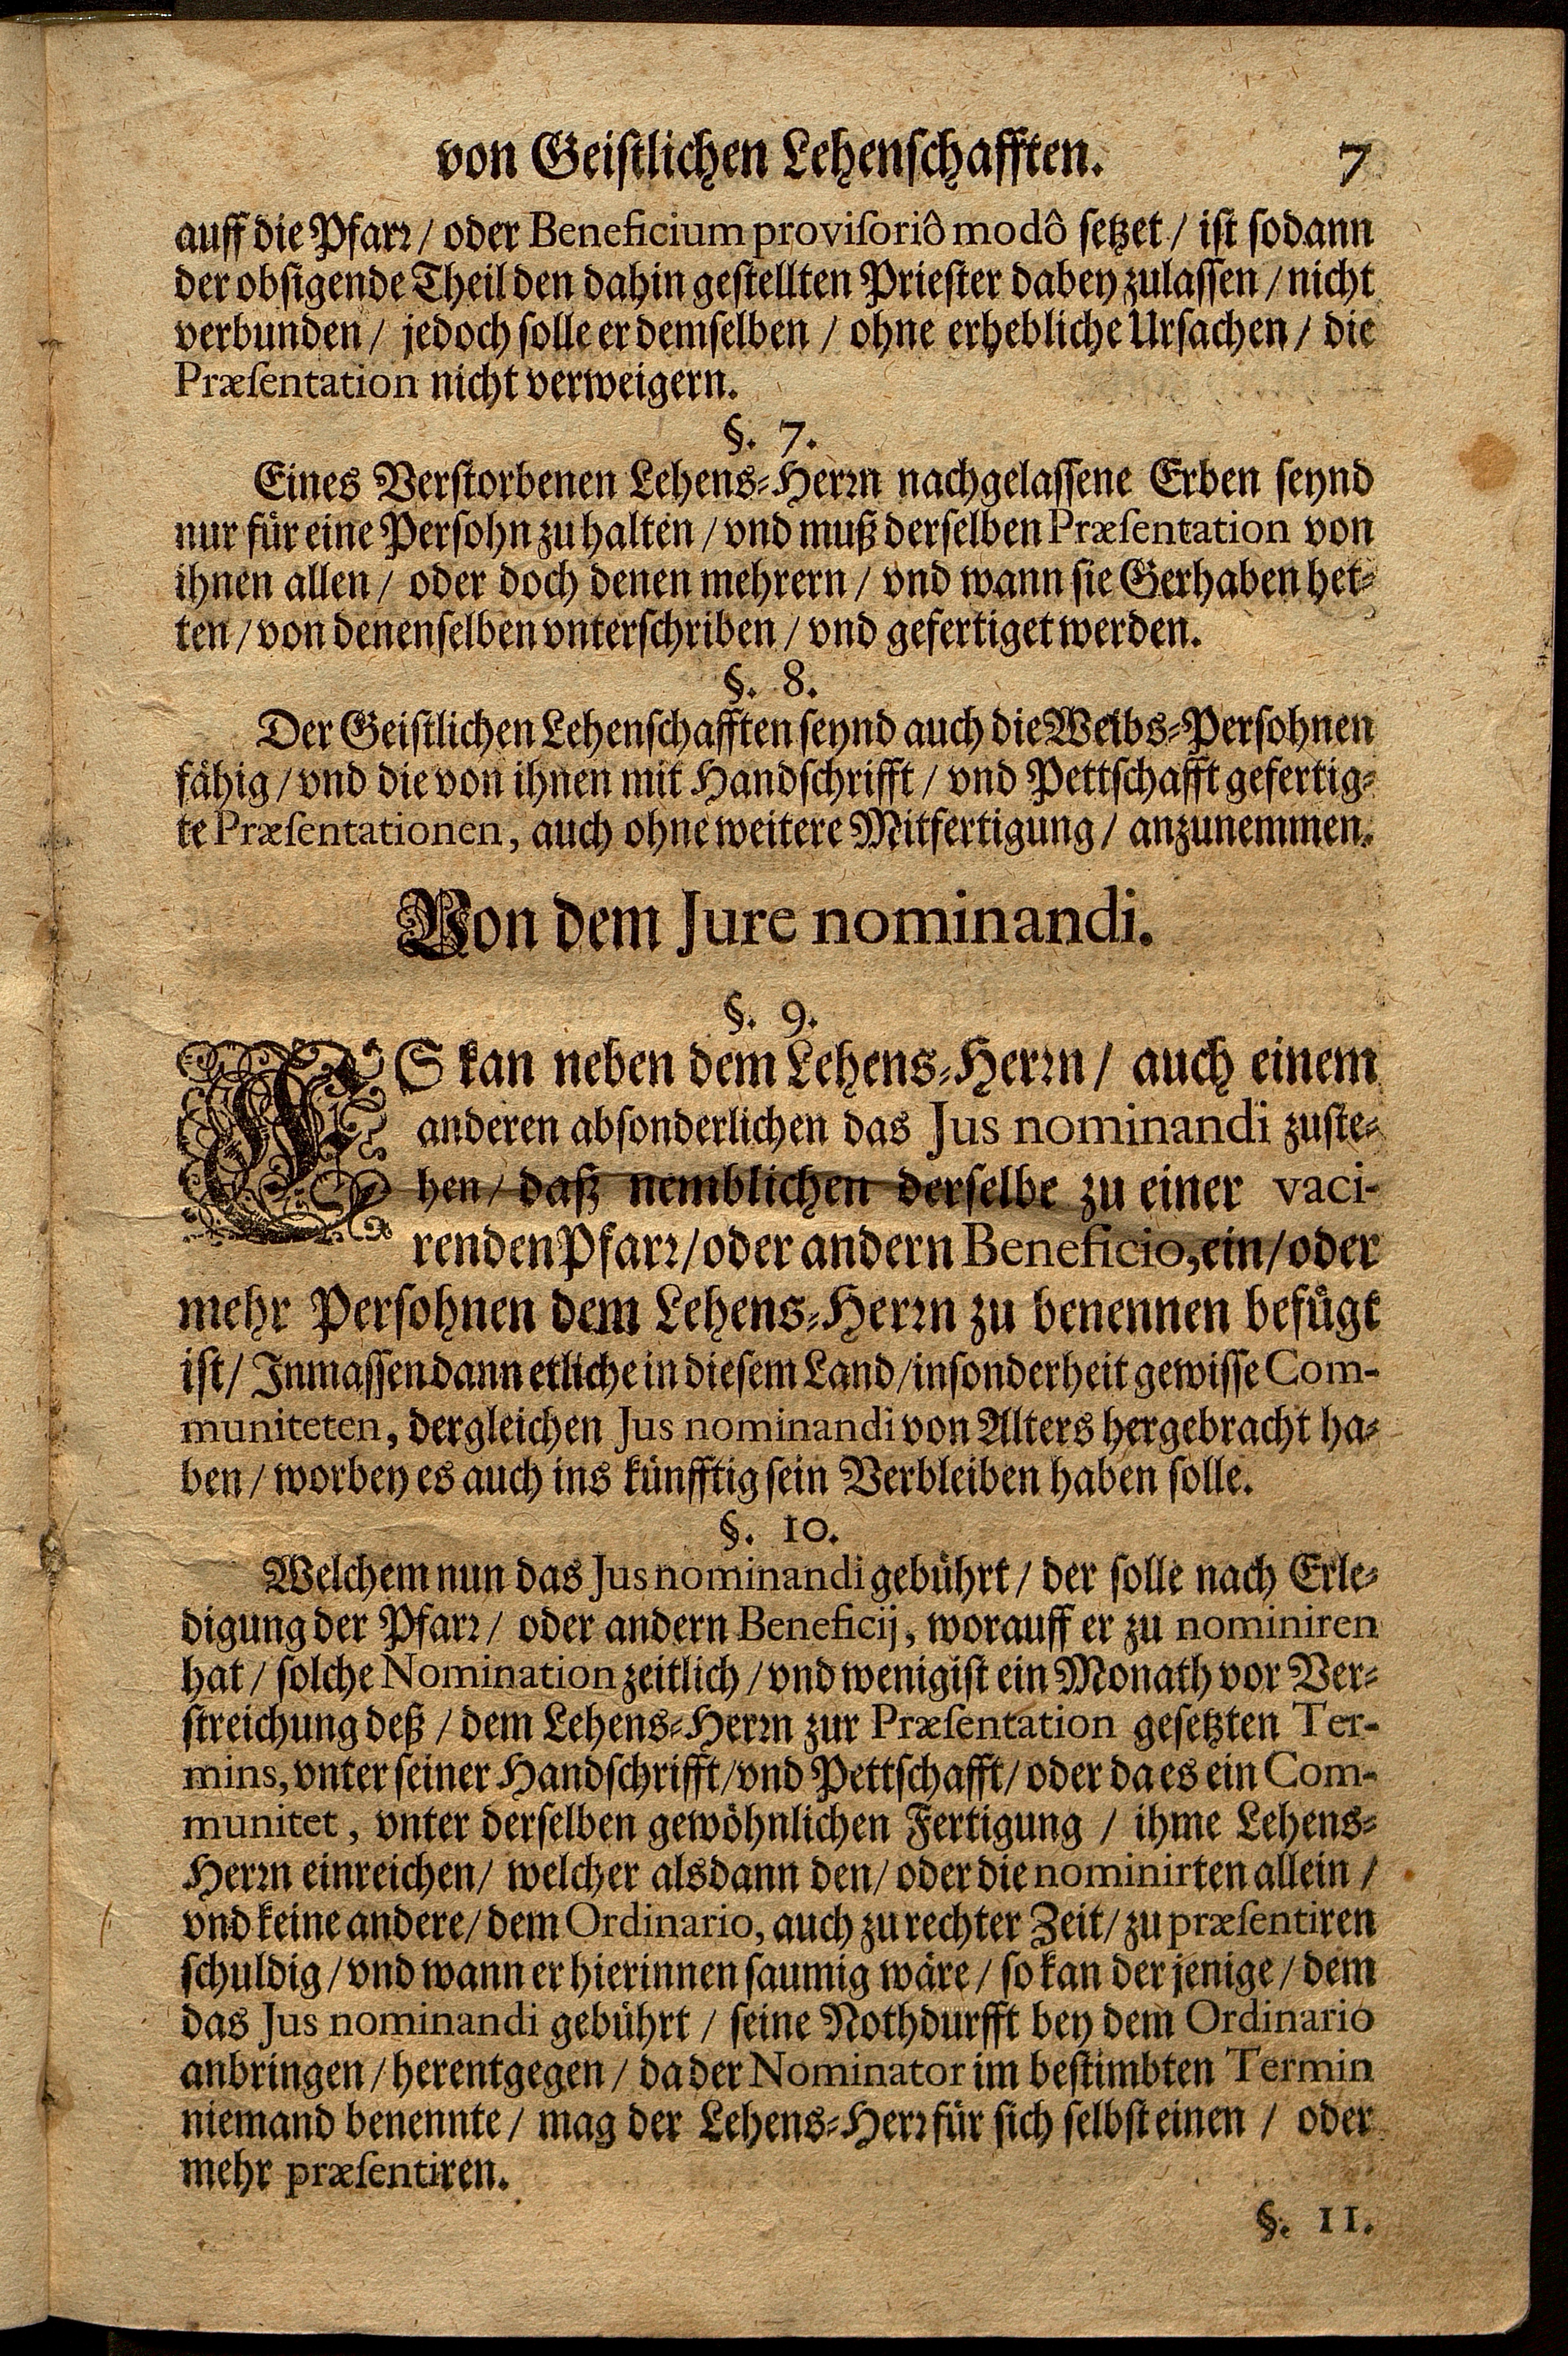 von Geistlichen Lehenschafften. 7
auff die Pfarr / oder Beneficium provisoriô modô setzet / ist sodann
der obsigende Theil den dahin gestellten Priester dabey zulassen / nicht
verbunden / jedoch solle er demselben / ohne erhebliche Ursachen / die
Præsentation nicht verweigern.
§. 7.
Eines Verstorbenen Lehens-Herrn nachgelassene Erben seynd
nur für eine Persohn zu halten / vnd muß derselben Præsentation von
ihnen allen / oder doch denen mehrern / vnd wann sie Gerhaben het-
ten / von denenselben vnterschriben / vnd gefertiget werden.
§. 8.
Der Geistlichen Lehenschafften seynd auch die Weibs-Persohnen
fähig / vnd die von ihnen mit Handschrifft / vnd Pettschafft gefertig-
te Præsentationen, auch ohne weitere Mitfertigung / anzunemmen.
Von dem Jure nominandi.
§. 9.
ES kan neben dem Lehens-Herrn / auch einem
anderen absonderlichen das Jus nominandi zuste-
hen / daß nemblichen derselbe zu einer vaci-
renden Pfarr / oder andern Beneficio, ein / oder
mehr Persohnen dem Lehens-Herrn zu benennen befügt
ist / Inmassen dann etliche in diesem Land / insonderheit gewisse Com-
muniteten, dergleichen Jus nominandi von Alters hergebracht ha-
ben / worbey es auch ins künfftig sein Verbleiben haben solle.
§. 10.
Welchem nun das Jus nominandi gebührt / der solle nach Erle-
digung der Pfarr / oder andern Beneficij, worauff er zu nominiren
hat / solche Nomination zeitlich / vnd wenigist ein Monath vor Ver-
streichung deß / dem Lehens-Herrn zur Præsentation gesetzten Ter-
mins, vnter seiner Handschrifft / vnd Pettschafft / oder da es ein Com-
munitet, vnter derselben gewöhnlichen Fertigung / ihme Lehens-
Herrn einreichen / welcher alsdann den / oder die nominirten allein /
vnd keine andere / dem Ordinario, auch zu rechter Zeit / zu præsentiren
schuldig / vnd wann er hierinnen saumig wäre / so kan der jenige / dem
das Jus nominandi gebührt / seine Nothdurfft bey dem Ordinario
anbringen / herentgegen / da der Nominator im bestimbten Termin
niemand benennte / mag der Lehens-Herr für sich selbst einen / oder
mehr præsentiren.
§. 11.